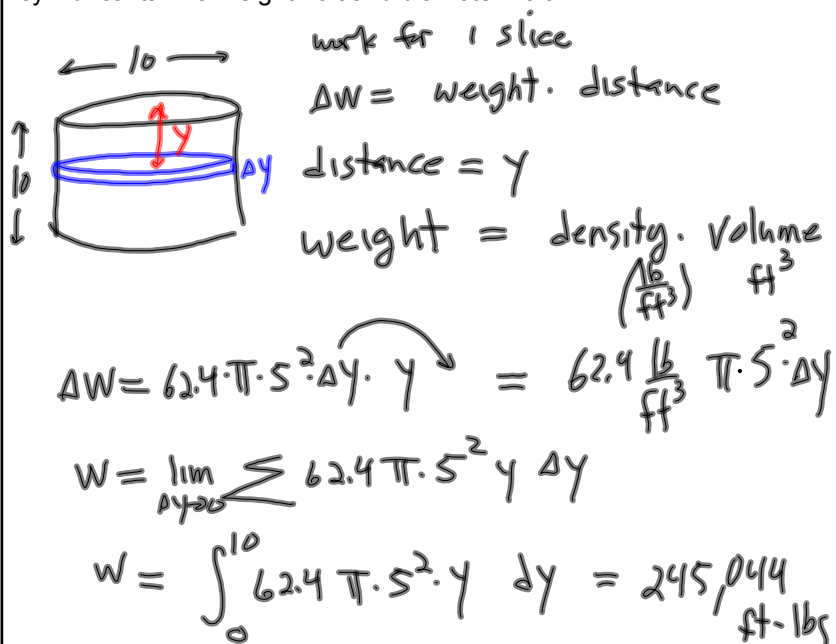 10
work for 1 slice
ΔW = weight · distance
y
10
Δy
distance = y
weight = density · volume
(lb/ft³) ft³
ΔW = 62.4·π·5²·Δy· y = 62.4 lb/ft³ π·5²·Δy
W = lim Δy→0 Σ 62.4 π·5² y Δy
W = ∫₀¹⁰ 62.4 π·5²·y dy = 245,044
ft-lbs